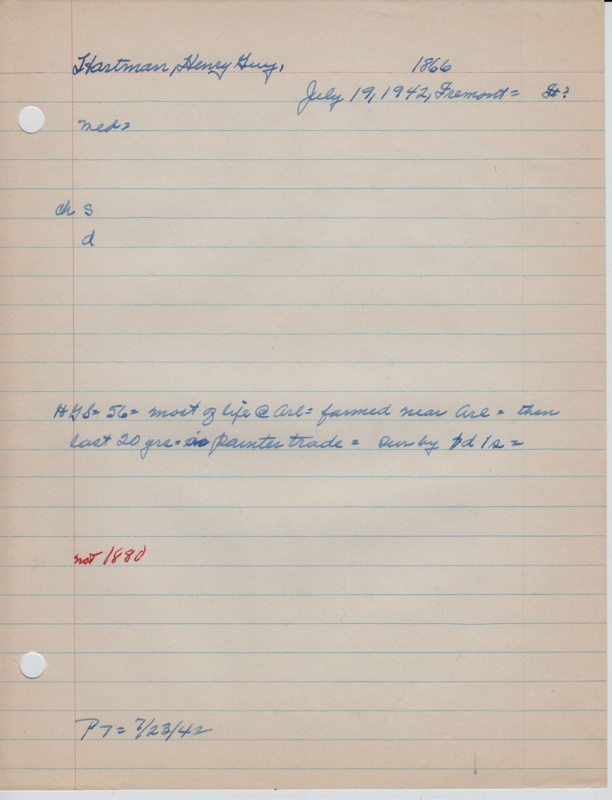 Hartman, Henry Guy, 1866
July 19, 1942, Fremont=
med=
ch s
d
56= most of life @ Arl= farmed near Arl = then
last 20 yrs= painter trade = sur by 1d 1s =
not 1880
PT= 7/23/42